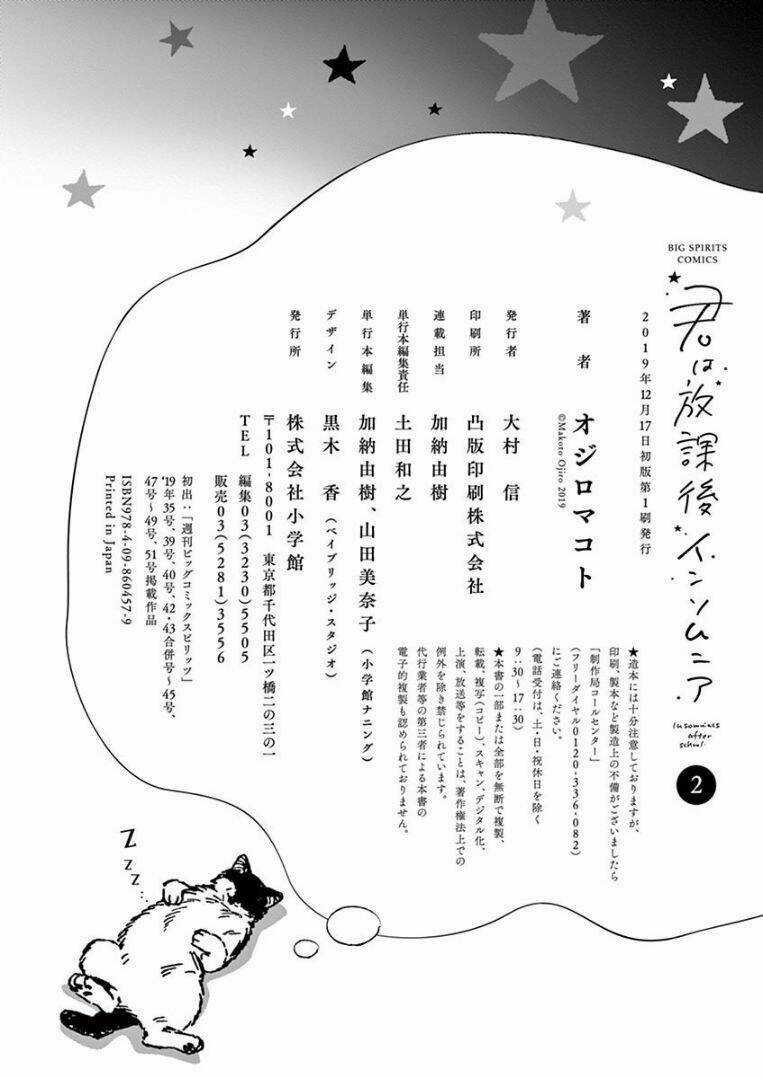 BIG SPIRITS
COMICS
君は放課後インソムニア
Insomnia
after
school
2
2019年12月17日初版第1刷発行
著者 オジロマコト
©Makoto Ojiro 2019
発行者 大村 信
印刷所 凸版印刷株式会社
連載担当 加納由樹
単行本編集責任 土田和之
単行本編集 加納由樹、山田美奈子(小学館ナニング)
デザイン 黒木 香(ベイブリッジ・スタジオ)
発行所 株式会社小学館
〒101-8001 東京都千代田区一ツ橋二の三の一
TEL 編集03(3230)5505
販売03(5281)3556
初出:「週刊ビッグコミックスピリッツ」
'19年35号、39号、40号、42・43合併号〜45号、
47号〜49号、51号掲載作品
ISBN978-4-09-860457-9
Printed in Japan
★造本には十分注意しておりますが、
印刷、製本など製造上の不備がございましたら
「制作局コールセンター」
(フリーダイヤル0120-336-082)
にご連絡ください。
(電話受付は、土・日・祝休日を除く
9:30〜17:30)
★本書の一部または全部を無断で複製、
転載、複写(コピー)、スキャン、デジタル化、
上演、放送等をすることは、著作権法上での
例外を除き禁じられています。
代行業者等の第三者による本書の
電子的複製も認められておりません。
Z
Z
Z...